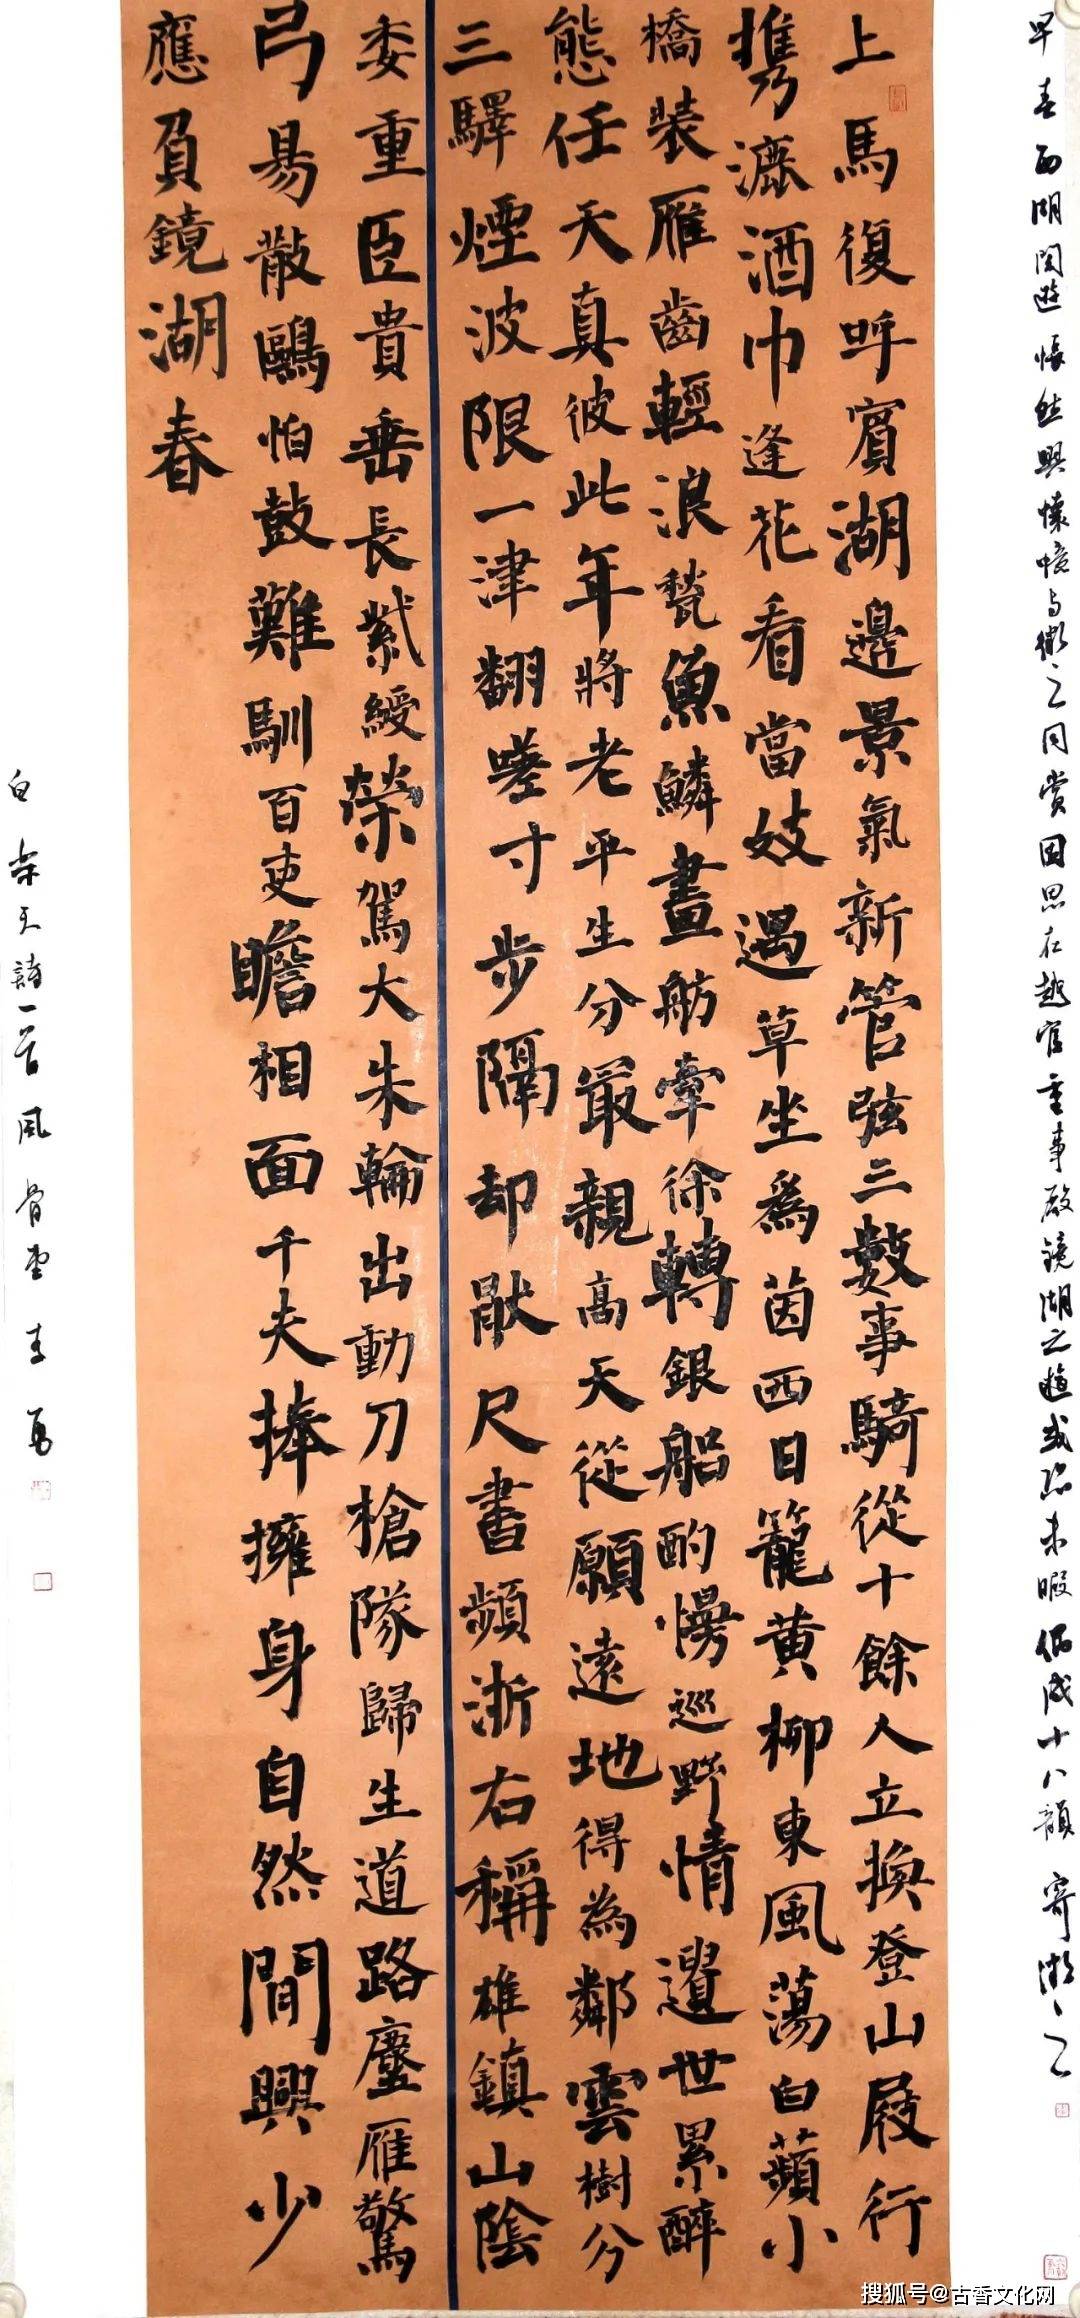 早春西湖閑遊悵然興懷憶与微之同赏因思在越官重事殷镜湖之遊或恐未暇偶成十八韻寄微之
上馬復呼賓湖邊景氣新管弦三數事騎從十餘人立換登山屐行
攜漉酒巾逢花看當妓遇草坐爲茵西日籠黄柳東風蕩白蘋小
橋装雁齒輕浪甃魚鱗畫舫牽徐轉銀船酌慢巡野情遺世累醉
態任天真彼此年將老平生分最親高天從願遠地得為鄰雲樹分
三驛煙波限一津翻嗟寸步隔却厭尺書頻浙右稱雄鎮山陰
委重臣貴垂長紫綬榮駕大朱輪出動刀槍隊歸生道路塵雁驚
弓易散鷗怕鼓難馴百吏瞻相面千夫捧擁身自然閒興少
應負鏡湖春
白樂天詩一首風骨堂李勇
搜狐号@古香文化网